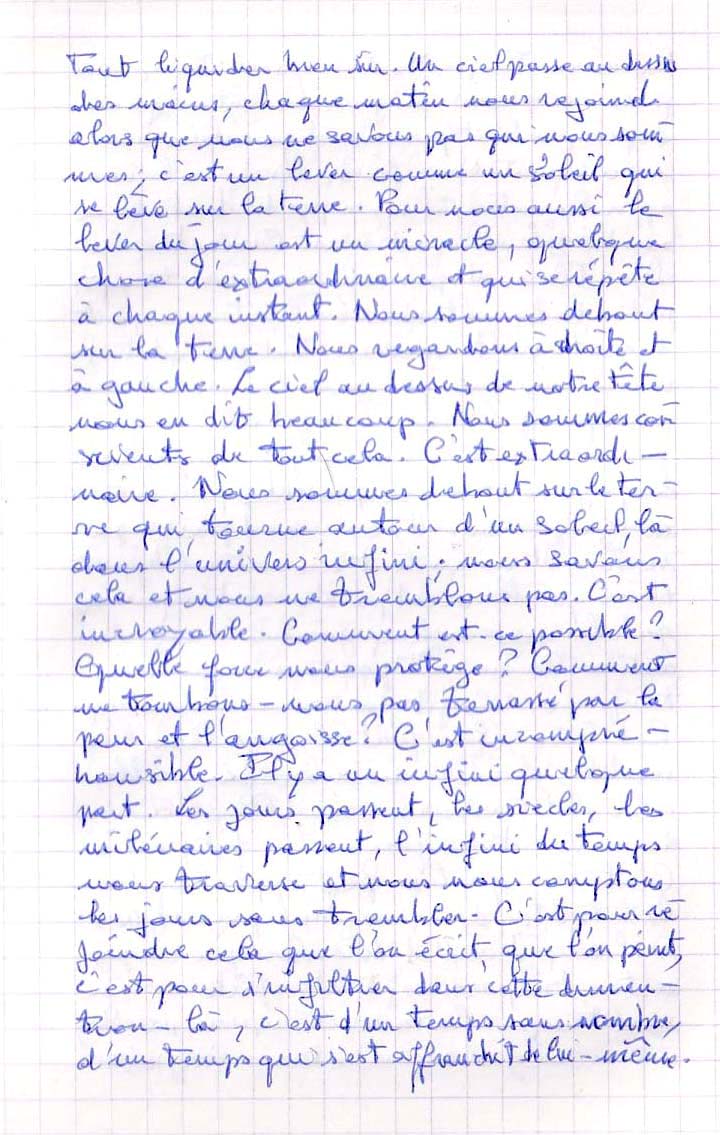 Tout liquider bien sûr. Un ciel passe au dessus
des mains, chaque matin nous rejoind
alors que nous ne savons pas qui nous som
mes; c'est un lever comme un soleil qui
se lève sur la terre. Pour nous aussi le
lever du jour est un miracle, quelque
chose d'extraordinaire et qui se répète
à chaque instant. Nous sommes debout
sur la terre. Nous regardons à droite et
à gauche. Le ciel au dessus de notre tête
nous en dit beaucoup. Nous sommes con
scients de tout cela. C'est extraordi-
naire. Nous sommes debout sur le ter-
re qui tourne autour d'un soleil, là
dans l'univers infini; nous savons
cela et nous ne tremblons pas. C'est
incroyable. Comment est-ce possible?
Quelle force nous protège? Comment
ne tombons-nous pas terrassé par la
peur et l'angoisse? C'est incompré-
hensible. Il y a un infini quelque
part. Les jours passent, les siècles, les
millénaires passent, l'infini du temps
nous traverse et nous nous comptons
les jours sans trembler. C'est pour re
joindre cela que l'on écrit, que l'on peint,
c'est pour s'infiltrer dans cette dimen-
tion-là, c'est d'un temps sans nombre,
d'un temps qui s'est affranchit de lui-même.